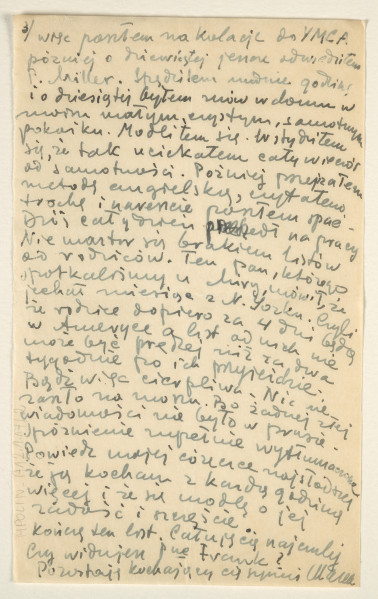 3/ więc poszłem na kolację do YMCA.
później o dziewiątej jeszcze odwiedziłem
p. Miller. Spędziłem nudne godziny
i o dziesiątej byłem znów w domu w
moim małym, czystym, samotnym
pokoiku. Modliłem się. Wstydziłem
się, że tak uciekałem cały wieczór
od samotności. Później przejrzałem
metodę angielską, czytałem
trochę i nareszcie poszłem spać.
Dziś cały dzień zszedł na pracy
Nie martw się brakiem listów
od rodziców. Ten pan, którego
spotkaliśmy u mówił, że
jechał miesiąc z N. Yorku. Czyli
że rodzice dopiero za 4 dni będą
w Ameryce a list od nich nie
może być prędzej niż za dwa
tygodnie po ich przyjeździe.
Bądź więc cierpliwa. Nic nie
zaszło na morzu. Bo żadnej złej
wiadomości nie było w prasie.
Spóźnienie zupełnie wytłumaczone
Powiedz mojej córeczce najsłodszej
że ją kocham z każdą godziną
więcej i że się modlę o jej
radość i szczęście.
Kończę ten list. Całuję Cię najczulej
Czy widujesz Pnę Frank?
Pozostaję kochający cię synuś Marek
MPOLIN-